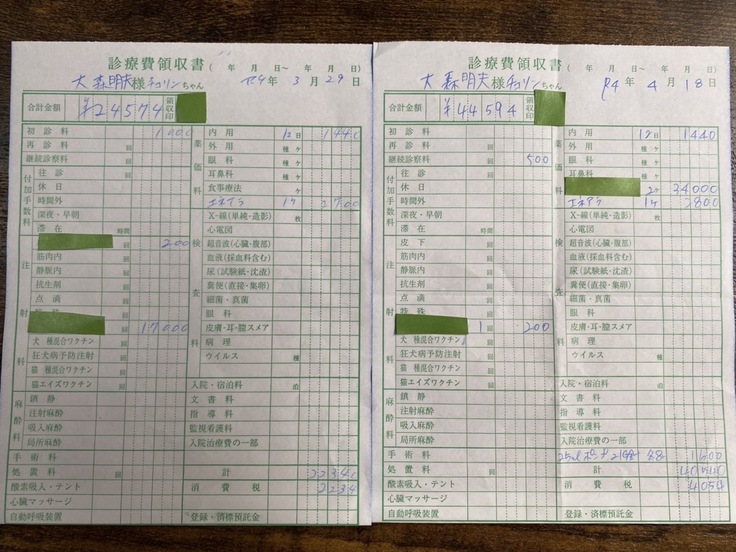 診療費領収書 ( 年 月 日〜 年 月 日)
大森明夫様チョリンちゃん R4年 3月 29日
合計金額 ¥24574 領収印
初診料 1000
再診料 回
継続診察料 回
付加手数料
往診 回
休日 回
時間外 回
深夜・早朝 回
滞在 時間
回 200
注射料
筋肉内 回
静脈内 回
抗生剤 回
点滴 回
回 17000
犬 種混合ワクチン 回
狂犬病予防注射 回
猫 種混合ワクチン 回
猫エイズワクチン 回
麻酔料
鎮静
注射麻酔
吸入麻酔
局所麻酔
手術料
処置料 回
酸素吸入・テント
心臓マッサージ
自動呼吸装置
薬価料
内用 12日 1440
外用 種ケ
眼科 種ケ
耳鼻科 種ケ
食事療法 ケ
1ケ 2700
検査料
X-線(単純・造影) 枚
心電図
超音波(心臓・腹部)
血液(採血料含む)
尿(試験紙・沈渣)
糞便(直接・集卵)
細菌・真菌
眼科
皮膚・耳・膣スメア
病理
ウイルス 種
入院・宿泊料 泊
文書料
指導料
監視看護料
入院治療費の一部
計 22340
消費税 2234
登録・済標預託金
診療費領収書 ( 年 月 日〜 年 月 日)
大森明夫様チョリンちゃん R4年 4月 18日
合計金額 ¥44594 領収印
初診料
再診料 回
継続診察料 回 500
付加手数料
往診 回
休日 回
時間外 回
深夜・早朝 回
滞在 時間
注射料
皮下 回
筋肉内 回
静脈内 回
抗生剤 回
点滴 回
1回 200
犬 種混合ワクチン 回
狂犬病予防注射 回
猫 種混合ワクチン 回
猫エイズワクチン 回
麻酔料
鎮静
注射麻酔
吸入麻酔
局所麻酔
手術料
処置料 回
酸素吸入・テント
心臓マッサージ
自動呼吸装置
薬価料
内用 12日 1440
外用 種ケ
眼科 種ケ
耳鼻科 種ケ
2ケ 34000
1ケ 2800
検査料
X-線(単純・造影) 枚
心電図
超音波(心臓・腹部)
血液(採血料含む)
尿(試験紙・沈渣)
糞便(直接・集卵)
細菌・真菌
眼科
皮膚・耳・膣スメア
病理
ウイルス 種
入院・宿泊料 泊
文書料
指導料
監視看護料
入院治療費の一部
1600
計 40540
消費税 4054
登録・済標預託金